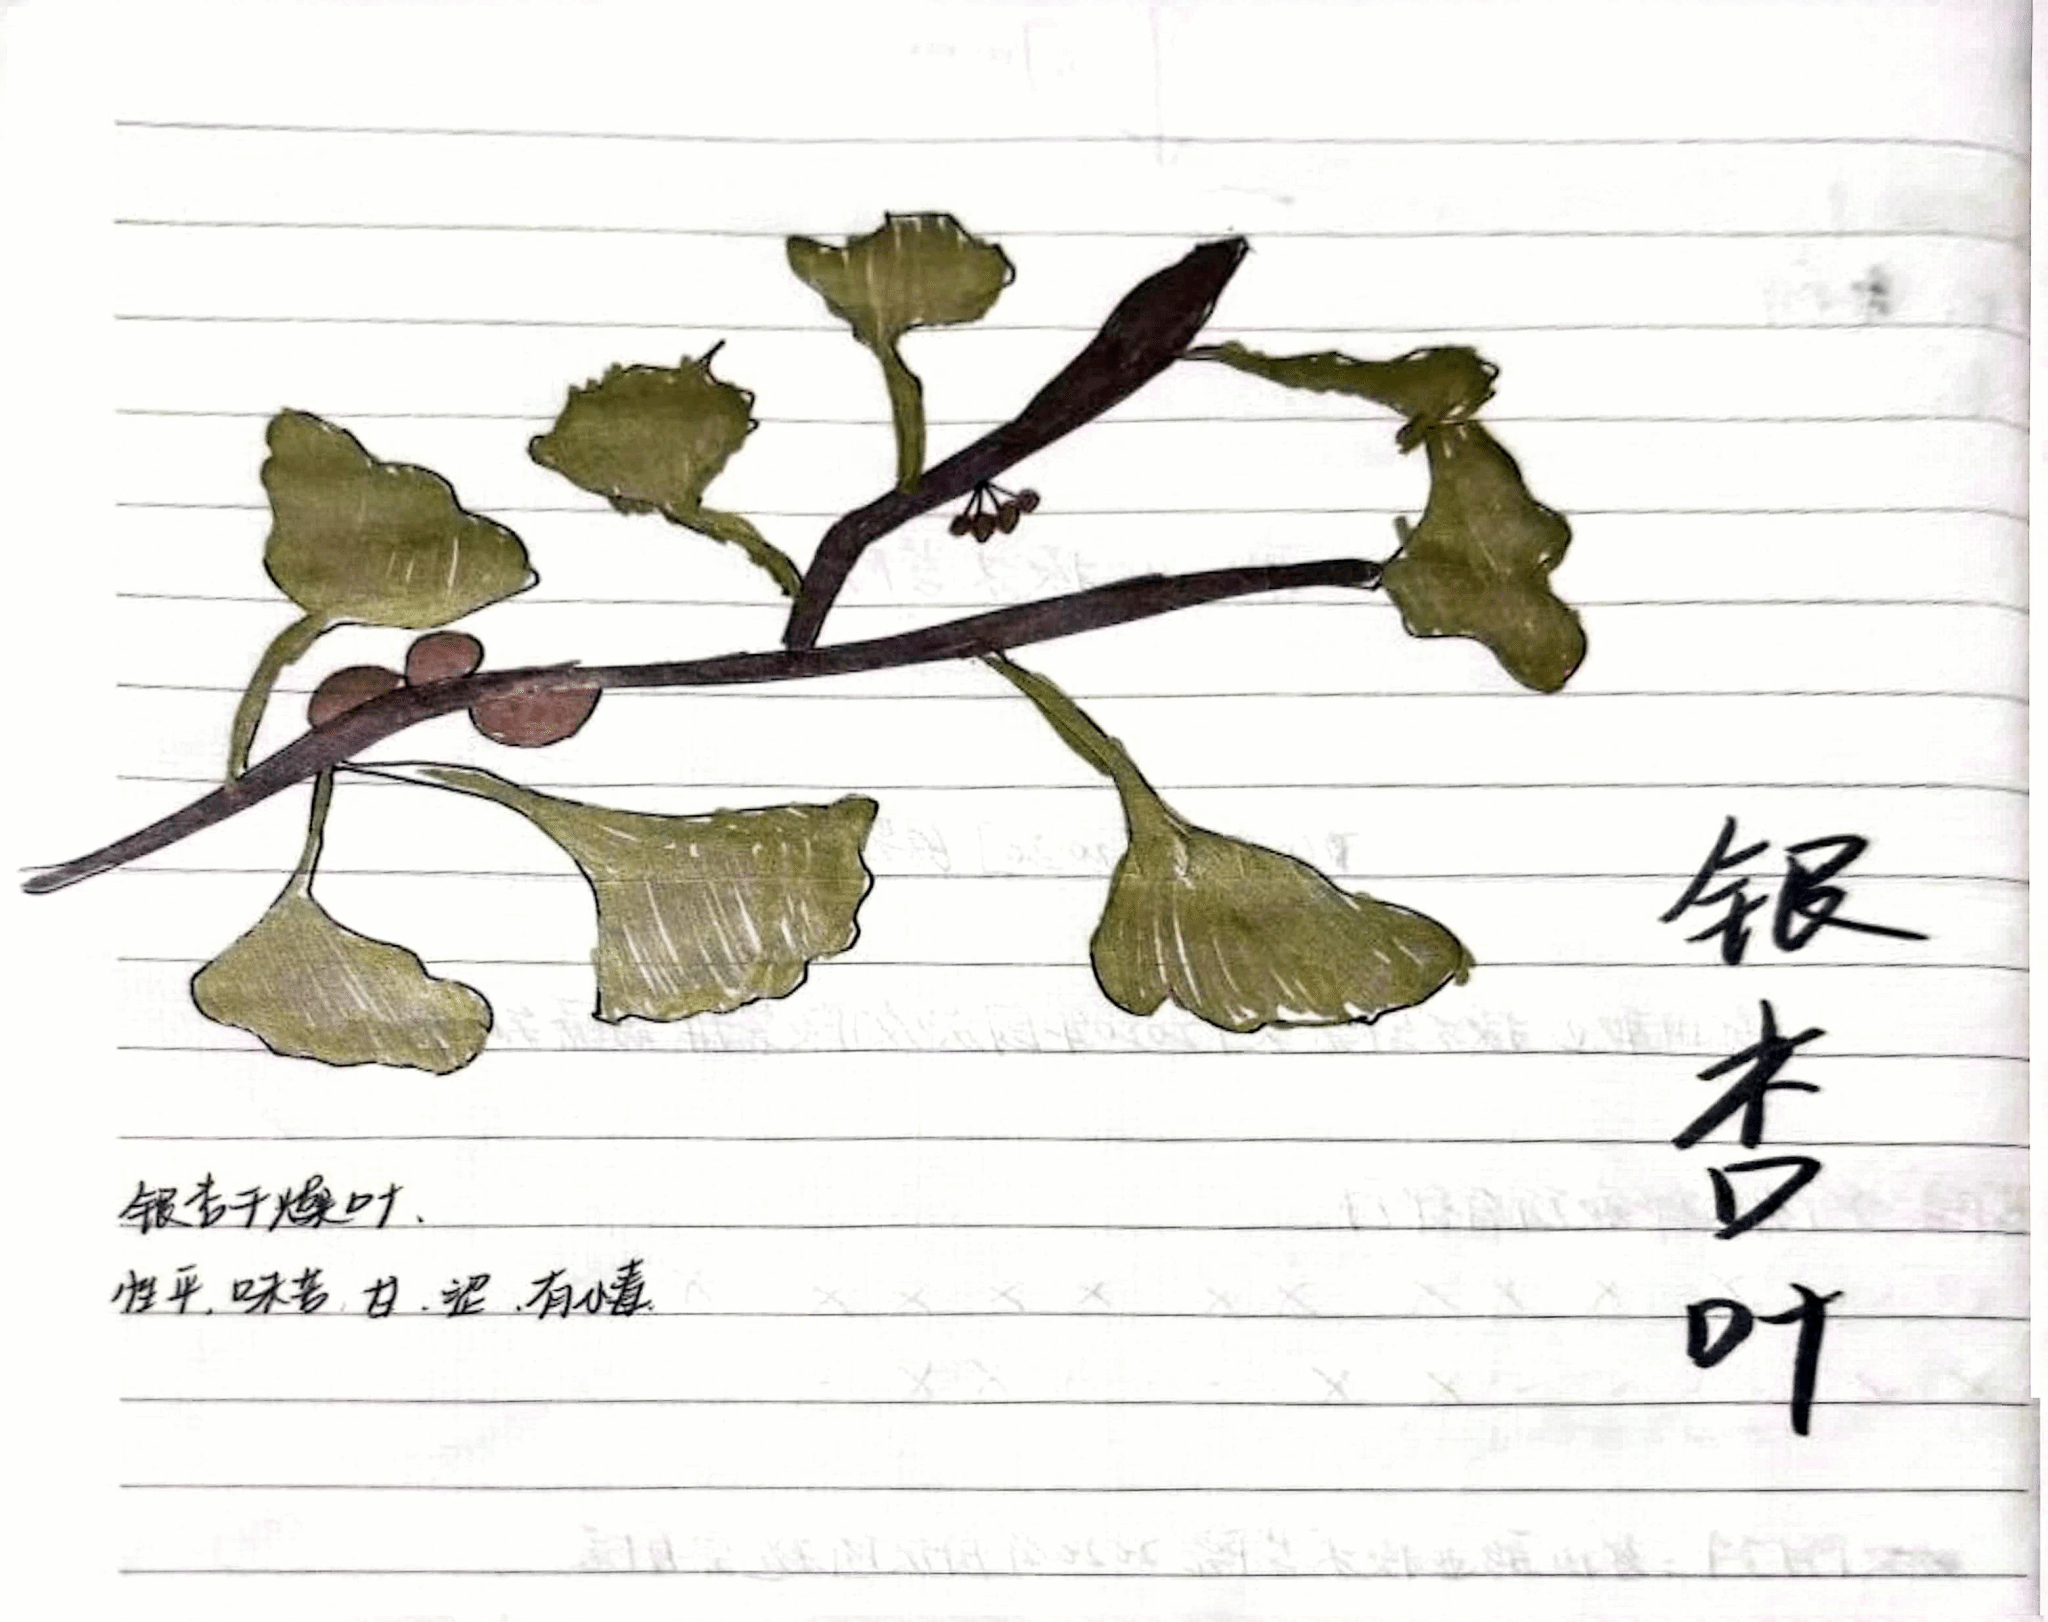 银杏叶
银杏干燥叶.
性平.味苦.甘.涩.有毒.